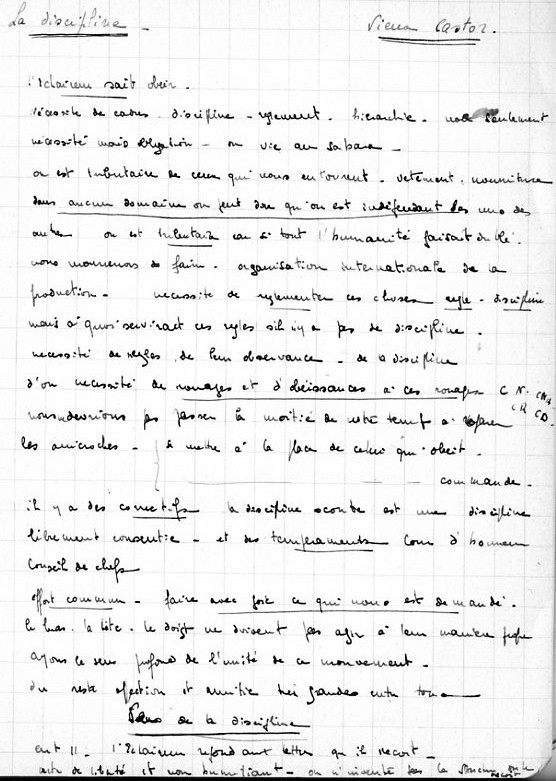 La discipline - Vieux Castor.
l'Eclaireur sait obéir.
nécessité de cadres. discipline - règlement. hiérarchie. non seulement
nécessité mais obligation - on vit au Sahara -
on est tributaire de ceux qui nous entourent - vêtement, nourriture
dans aucun domaine on peut dire qu'on est indépendant les uns des
autres on est tributaire car si tout l'humanité faisait du blé.
nous mourrions de faim. organisation internationale de la
production - nécessité de réglementer ces choses règle - discipline
mais à quoi serviraient ces règles s'il n'y a pas de discipline.
nécessité de règles, de leur observance - de la discipline
d'où nécessité de rouages et d'obéissances à ces rouages C N. CR CD.
nous devrions pas passer la moitié de notre temps à
les anicroches - se mettre à la place de celui qui obéit.
commande.
il y a des correctifs la discipline scoute est une discipline
librement consentie - et des tempéraments Cour d'honneur
Conseil de chefs
effort commun - faire avec joie ce qui nous est demandé.
le bras. la tête. le doigt ne doivent pas agir à leur manière propre
ayons le sens profond de l'unité de ce mouvement -
du reste affection et amitié très grandes entre tous
Sens de la discipline
art 11 - l'Eclaireur répond aux lettres qu'il reçoit -
acte de liberté et non humiliant - on n'invente pas la structure on la
reçoit